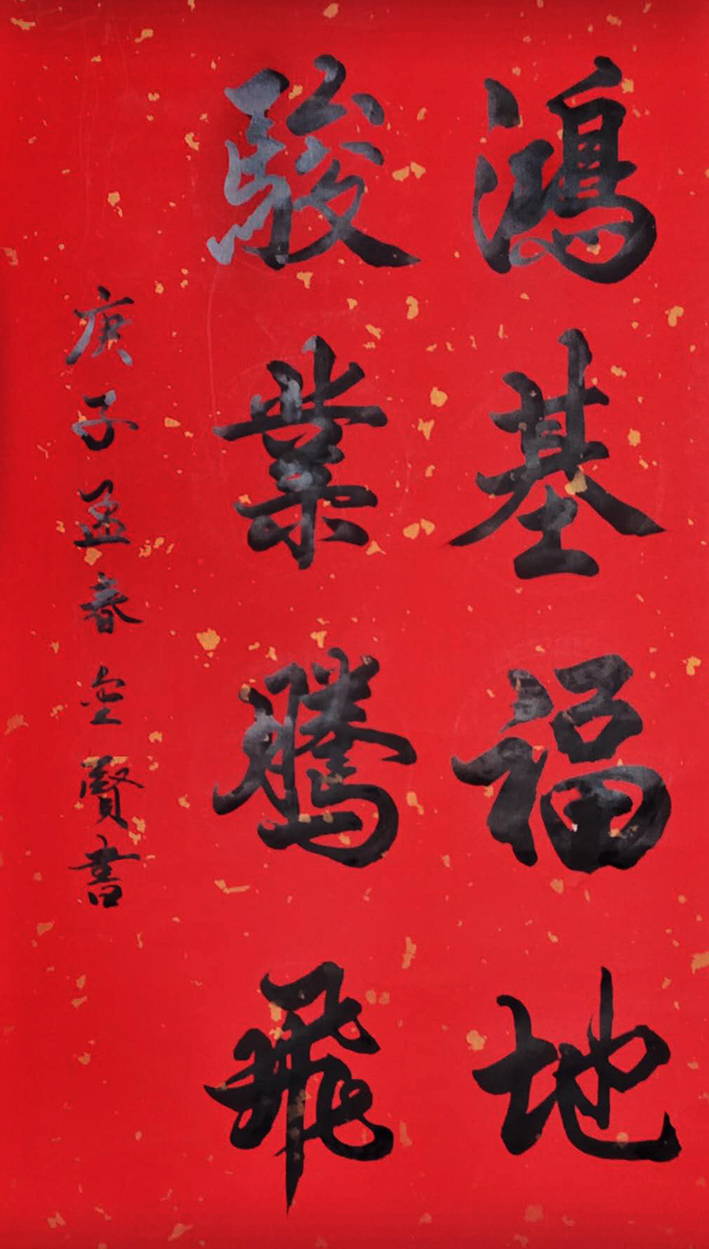 鴻基福地
駿業騰飛
庚子孟春金賢書